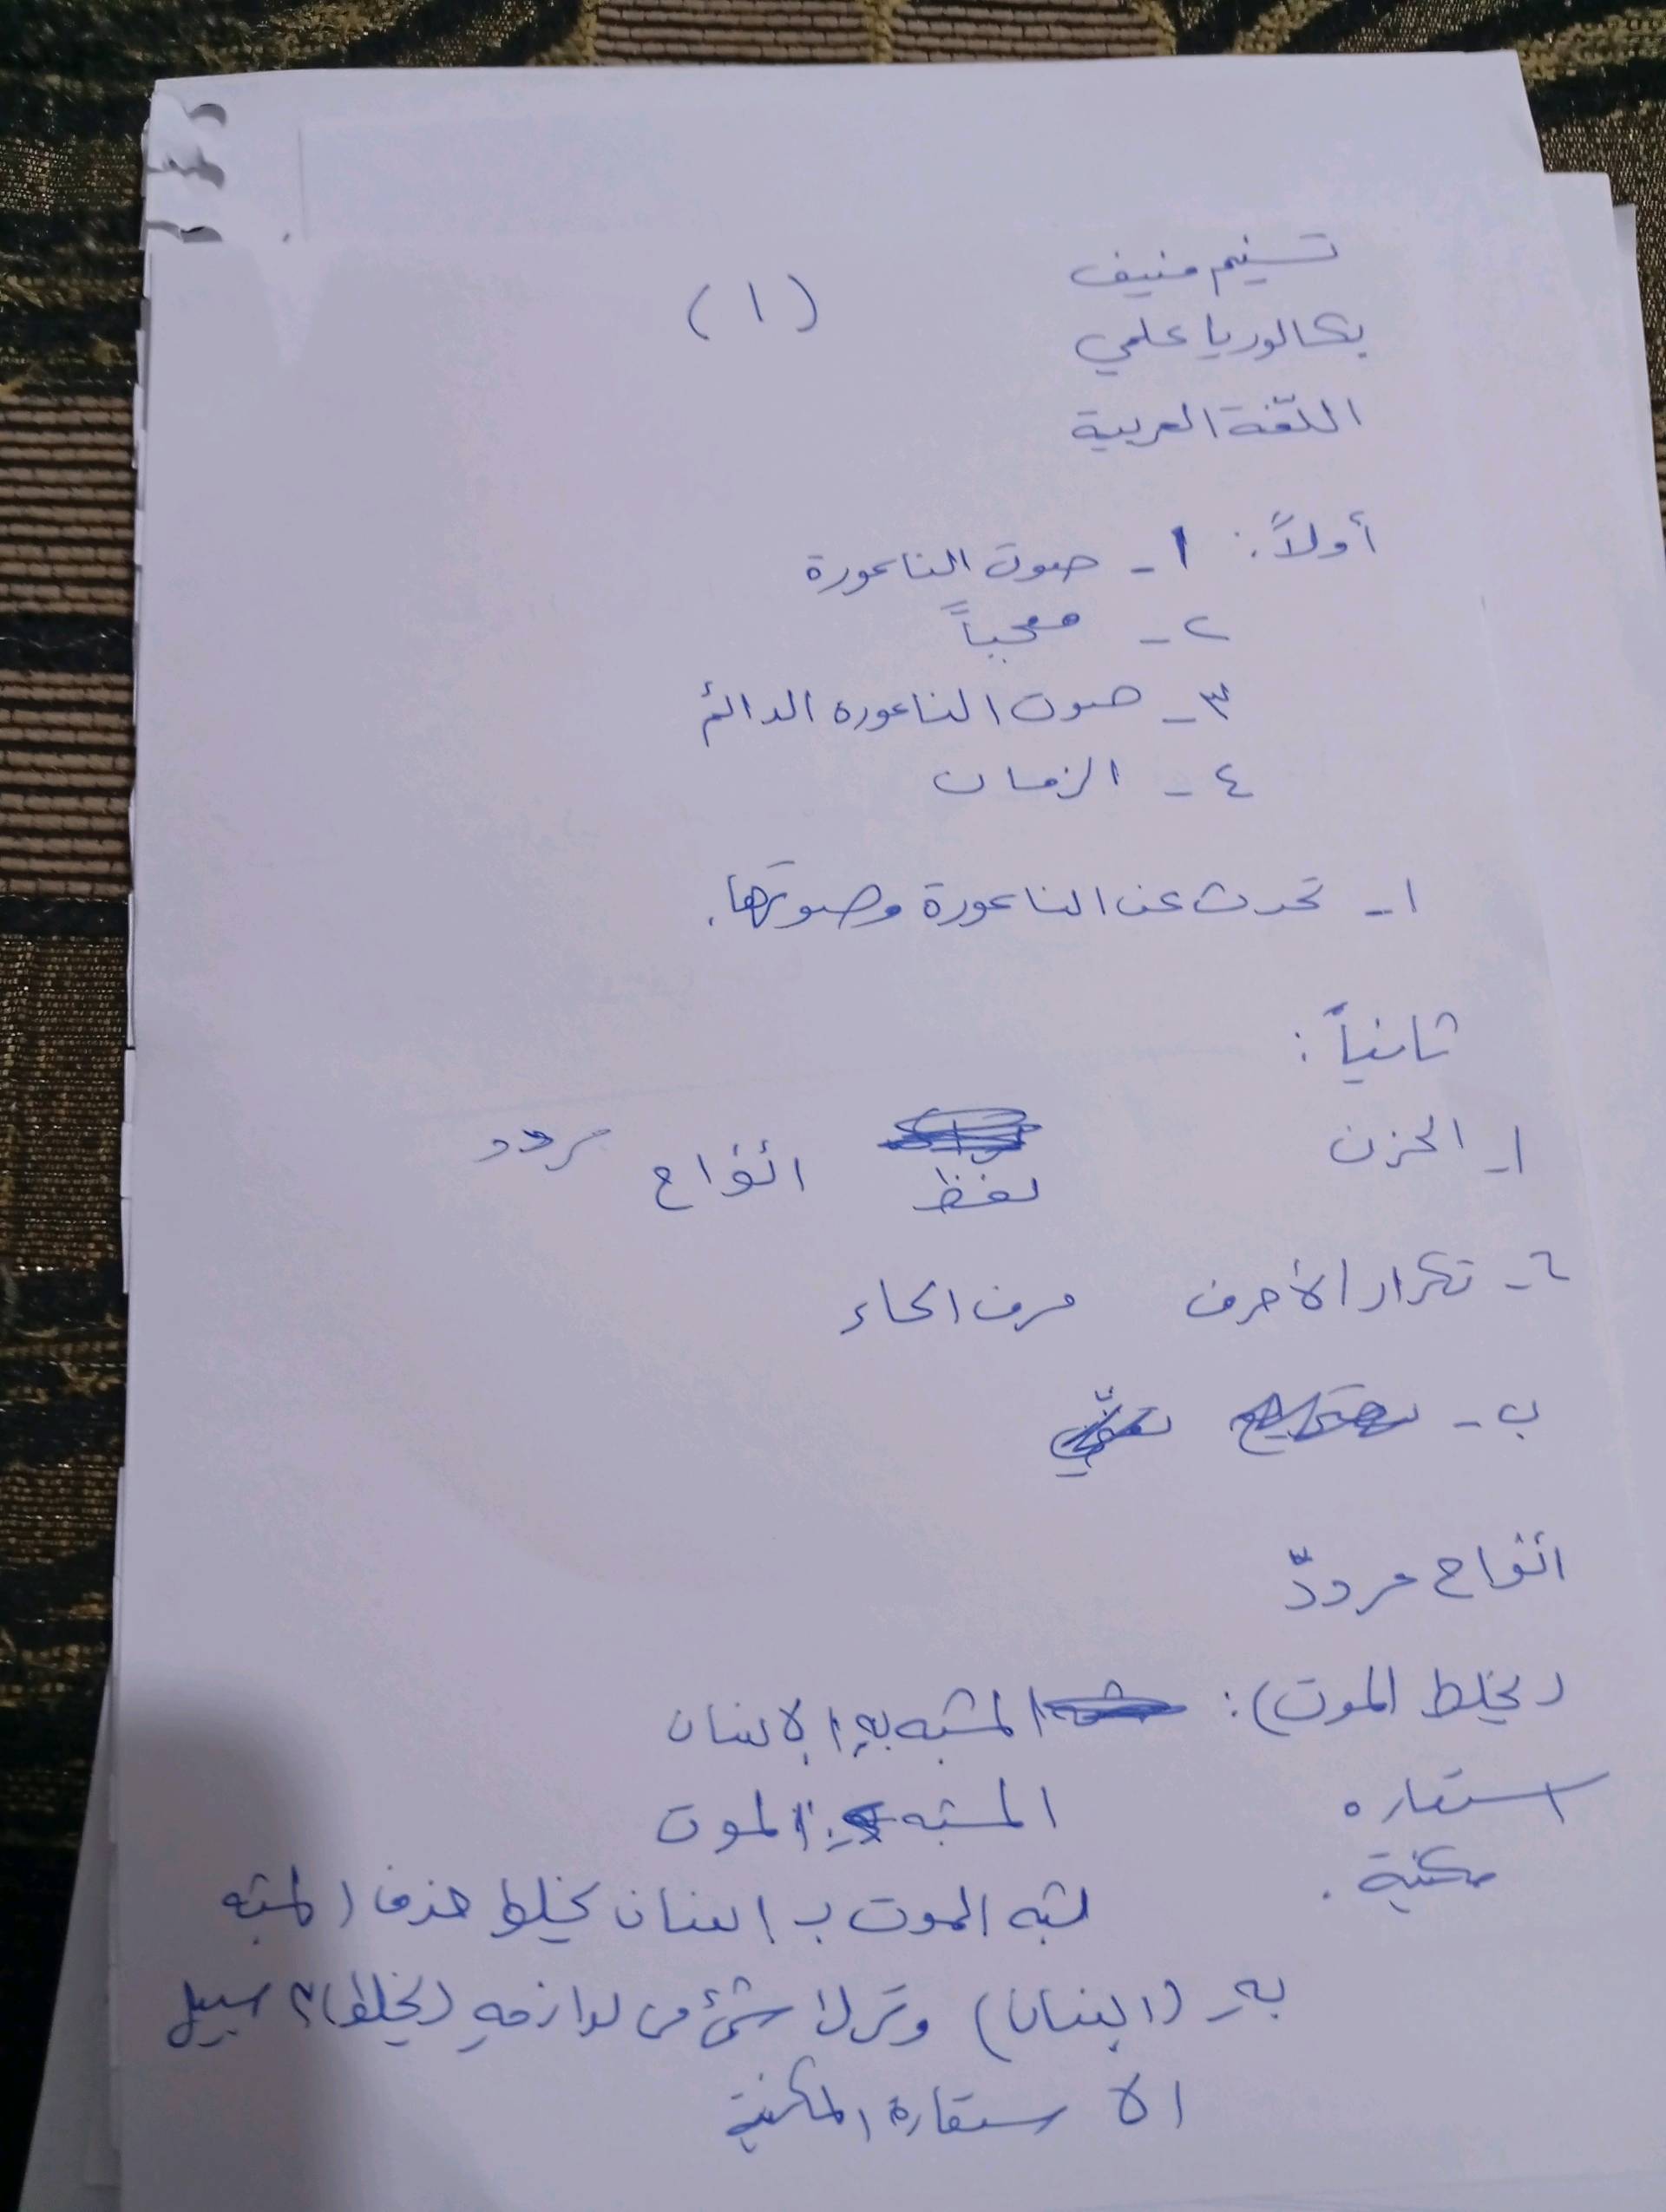 تسنيم منيف
(١)
بكالوريا علمي
اللّغة العربية
أولاً: ١ـ صوت الناعورة
٢ـ معجباً
٣ـ صوت الناعورة الدائم
٤ـ الزمان
١ـ تحدث عن الناعورة وصوتها.
ثانياً:
١ـ الحزن لفظ اتنواح مردد
٢ـ تكرار الأحرف حرف الحاء
ب ـ
اتنواح مردد
(يخلط الموت): المشبه به الإنسان
استعاره المشبه الموت
مكنية. شبه الموت ب إنسان يخلط حذف المشبه
به (إنسان) وترك شيء من لوازمه (يخلط) ع سبيل
الاستعارة المكنية